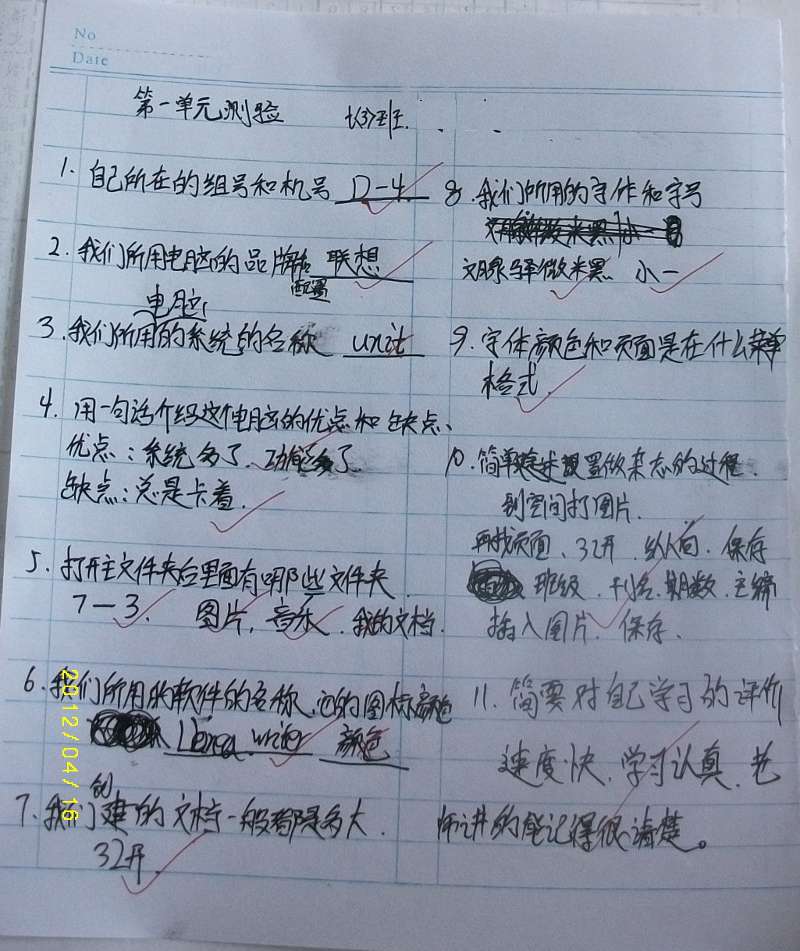 No
Date
第一单元测验 七(3)班
1. 自己所在的组号和机号 D-4
2. 我们所用电脑的品牌 联想
配置
电脑
3. 我们所用的系统的名称 unit
4. 用一句话介绍这个电脑的优点和缺点、
优点：系统多了 功能多了
缺点：总是卡着.
5. 打开主文件夹后里面有哪些文件夹.
7-3. 图片, 音乐. 我的文档.
6. 我们所用的软件的名称.它的图标颜色
writer 颜色
创
7. 我们建的文档一般都是多大.
32开.
8. 我们所用的字体和字号
文泉驿微米黑 小一
9. 字体颜色和页面是在什么菜单
格式.
10. 简单 设置做杂志的过程.
到空间打图片.
再找页面、32开 纵向. 保存
班级. 刊名. 期数. 主编
插入图片. 保存.
11. 简要对自己学习的评价
速度快. 学习认真. 老
师讲的能记得很清楚。
2012/04/16